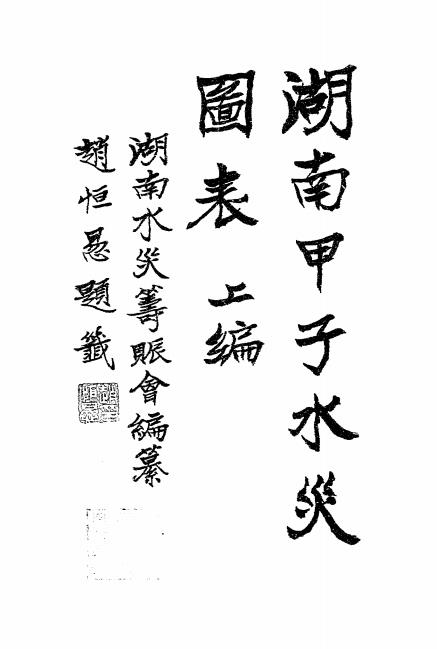 湖南甲子水災
圖表 上編
湖南水災籌賑會編纂
趙恒惖題籤